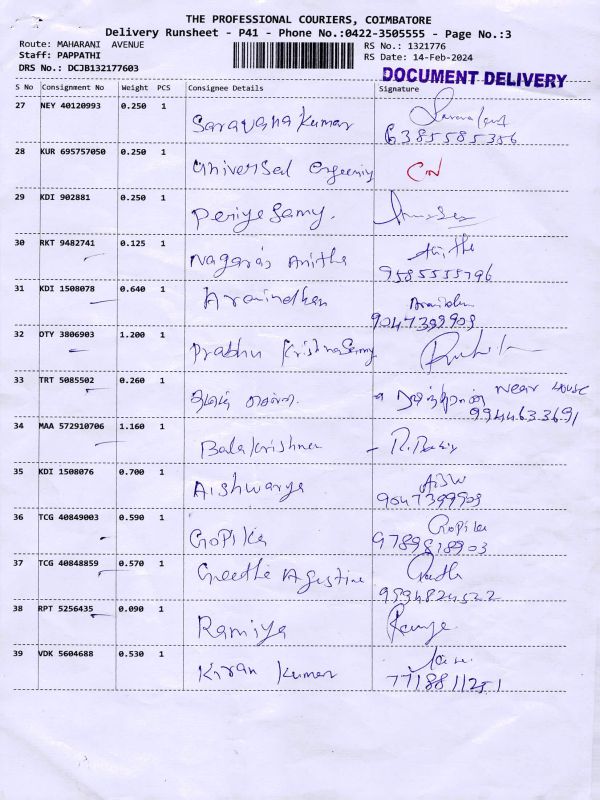 THE PROFESSIONAL COURIERS, COIMBATORE
Delivery Runsheet - P41 - Phone No.:0422-3505555 - Page No.:3
Route: MAHARANI AVENUE
RS No.: 1321776
Staff: PAPPATHI
RS Date: 14-Feb-2024
DRS No.: DCJB132177603
DOCUMENT DELIVERY
S No Consignment No Weight PCS Consignee Details Signature
27 NEY 40120993 0.250 1 Saravana Kumar
6385585356
28 KUR 695757050 0.250 1 Universal
29 KDI 902881 0.250 1 Periye Samy.
30 RKT 9482741 0.125 1 Nagaras Anitha
31 KDI 1508078 0.640 1 Aravindhan
9047399909
32 DTY 3806903 1.200 1 Prabhu Krishna Samy
33 TRT 5085502 0.260 1 Near House
9944633691
34 MAA 572910706 1.160 1 Bala Krishnan
35 KDI 1508076 0.700 1 Aishwarya
9047399909
36 TCG 40849003 0.590 1 Gopika Gopika
9789818903
37 TCG 40848859 0.570 1 Geetha Agustine
38 RPT 5256435 0.090 1 Ramiya
39 VDK 5604688 0.530 1 Kiran Kumar
7718811251